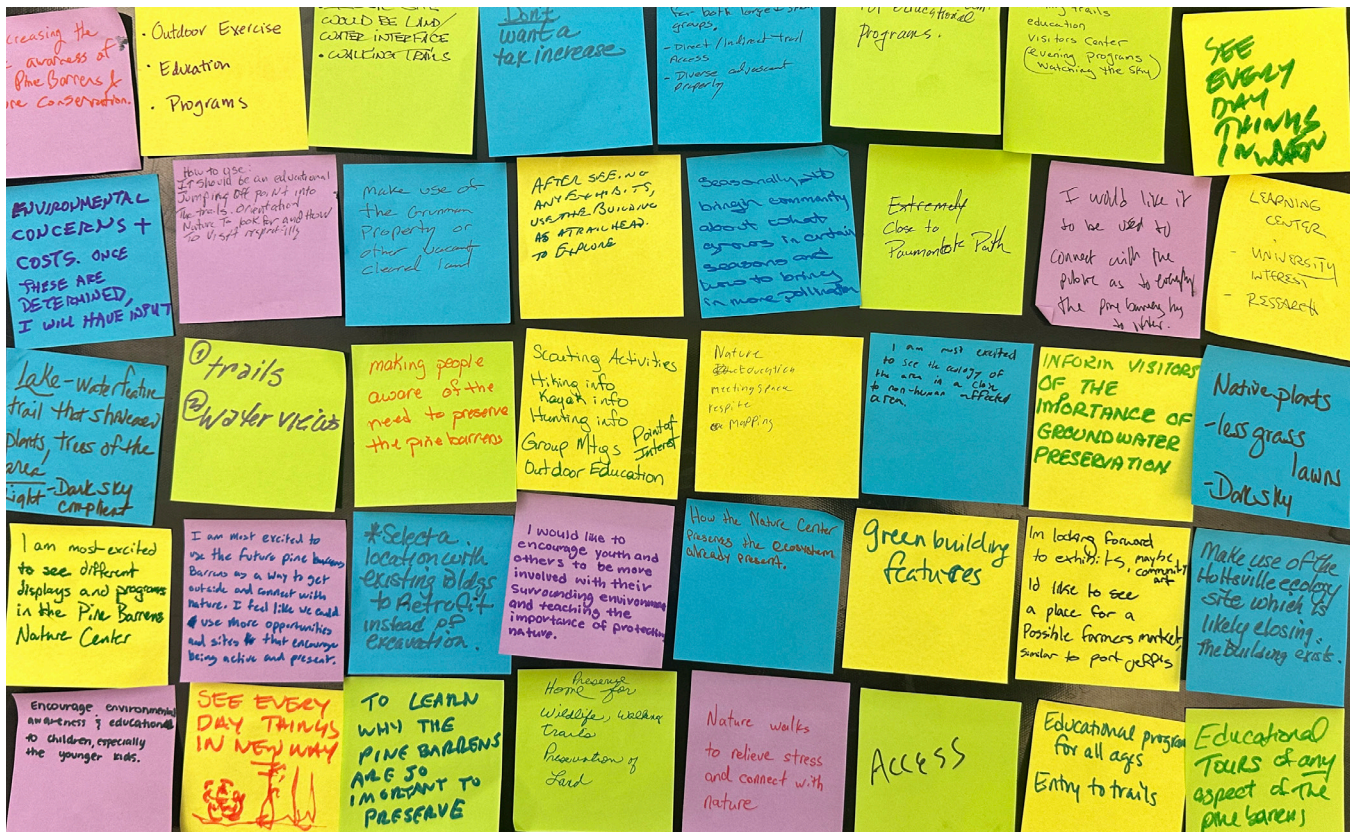 creasing the
awareness of
Pine Barrens &
Conservation.
· Outdoor Exercise
· Education
· Programs
WOULD BE LAND/
WATER INTERFACE
• WALKING TRAILS
Don't
want a
tax increase
for both large & small
groups.
- Direct/Indirect trail
Access
- Diverse adjascent
property
Programs.
trails
education
visitors center
(evening programs
watching the sky)
SEE
EVERY
DAY
THINGS
IN
ENVIRONMENTAL
CONCERNS +
COSTS. ONCE
THESE ARE
DETERMINED,
I WILL HAVE INPUT
How to use:
It should be an educational
Jumping off point into
The trails. Orientation
Nature To look for and How
To Visit repectfully
Make use of
the Grumman
Property or
other vacant
cleared land
AFTER SEEING
ANY EXHIBITS,
USE THE BUILDING
AS A TRAILHEAD.
TO EXPLORE
bring in community
about
grows in certain
seasons and
how to bring
in more pollinators
Extremely
Close to
Paumanok Path
I would like it
to be used to
connect with the
public as to
the pine barrens
LEARNING
CENTER
- UNIVERSITY
INTEREST
- RESEARCH
Lake-Water feature
trail that showcased
plants, trees of the
area,
Light-Dark sky
complient
① trails
② water views
making people
aware of the
need to preserve
the pine barrens
Scouting Activities
Hiking info
Kayak info
Hunting info
Group Mtgs Point of
Interest
Outdoor Education
Nature
education
meeting space
respite
mapping
I am most excited
to see the ecology of
the area in a close
to non-human affected
area.
INFORM VISITORS
OF THE
IMPORTANCE OF
GROUNDWATER
PRESERVATION
Native plants
-less grass
lawns
-Darksky
I am most excited
to see different
displays and programs
in the Pine Barrens
Nature Center
I am most excited to
use the future pine barrens
Barrens as a way to get
outside and connect with
nature. I feel like we could
use more opportunities
and sites that encourage
being active and present.
*Select a
location with
existing bldgs
to Retrofit
instead of
excavation.
I would like to
encourage youth and
others to be more
involved with their
surrounding environment
and teaching the
importance of protecting
nature.
How the Nature Center
preserves the ecosystem
already present.
Green building
features
Im looking forward
to exhibits, maybe
community
art
Id like to see
a place for a
Possible farmers market,
similar to port jeffs
Make use of the
Holtsville ecology
site which is
likely closing.
The building exists.
Encourage environmental
awareness & educational
to children, especially
the younger kids.
SEE EVERY
DAY THINGS
IN NEW WAY
TO LEARN
WHY THE
PINE BARRENS
ARE SO
IMORTANT TO
PRESERVE
Preserve
Home for
Wildlife, Walking
trails
Preservation of
Land
Nature walks
to relieve stress
and connect with
nature
Access
Educational program
for all ages
Entry to trails
Educational
TOURS of any
aspect of The
pine barrens